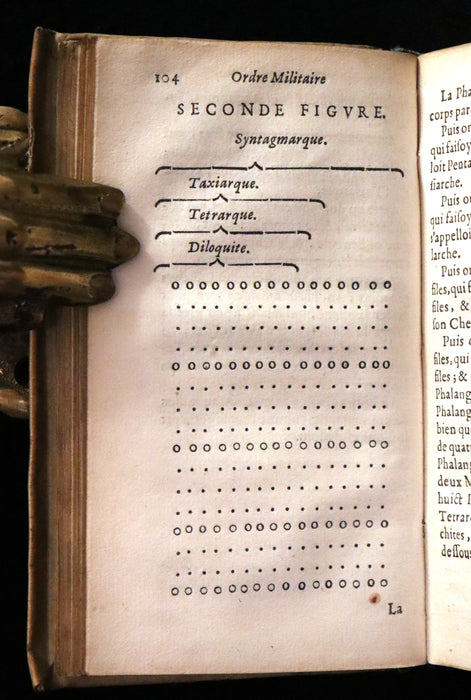 104 Ordre Militaire
SECONDE FIGVRE.
Syntagmarque.
Taxiarque.
Tetrarque.
Diloquite.
La
La Pha
corps par
Puis or
qui faiſoy
loit Penta
ſiarche.
Puis ou
qui faiſoy
s'appelloi
larche.
Puis or
files, qui f
files, &
ſon Che
Puis
files, qui
files; &
Phalang
Phalang
bien qu
de quat
Phalan
deux M
huict
Tetrar
chites,
deſſous